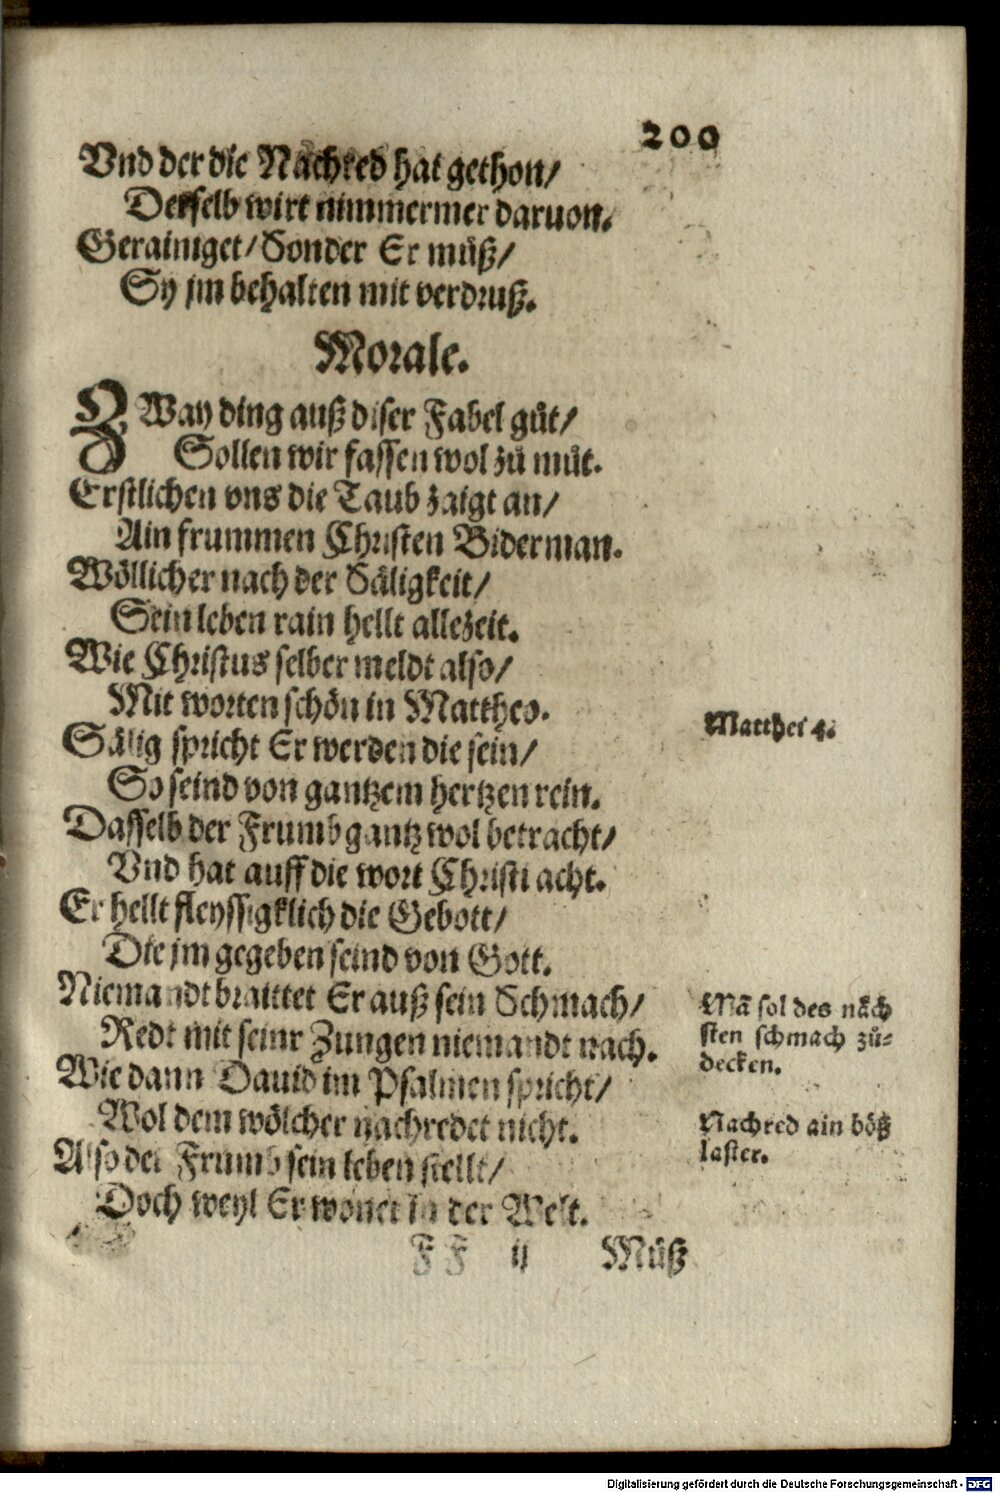 200
Vnd der die Nachred hat gethon/
Derselb wirt nimmermer daruon.
Gerainiget/ Sonder Er muͤß/
Sy jm behalten mit verdruß.
Morale.
ZWay ding auß diser Fabel guͤt/
Sollen wir fassen wol zuͤ muͤt.
Erstlichen vns die Taub zaigt an/
Ain frummen Christen Biderman.
Wöllicher nach der Säligkeit/
Sein leben rain hellt allezeit.
Wie Christus selber meldt also/
Mit worten schön in Mattheo.
Sälig spricht Er werden die sein/
So seind von gantzem hertzen rein.
Dasselb der Frumb gantz wol betracht/
Vnd hat auff die wort Christi acht.
Er hellt fleyssigklich die Gebott/
Die jm gegeben seind von Gott.
Niemandt braittet Er auß sein Schmach/
Redt mit seinr Zungen niemandt nach.
Wie dann Dauid im Psalmen spricht/
Wol dem wölcher nachredet nicht.
Also der Frumb sein leben stellt/
Doch weyl Er wonet in der Welt.
FF ij Muͤß
Matthei 4.
Mã sol des näch
sten schmach zuͤ-
decken.
Nachred ain böß
laster.
Digitalisierung gefördert durch die Deutsche Forschungsgemeinschaft - DFG